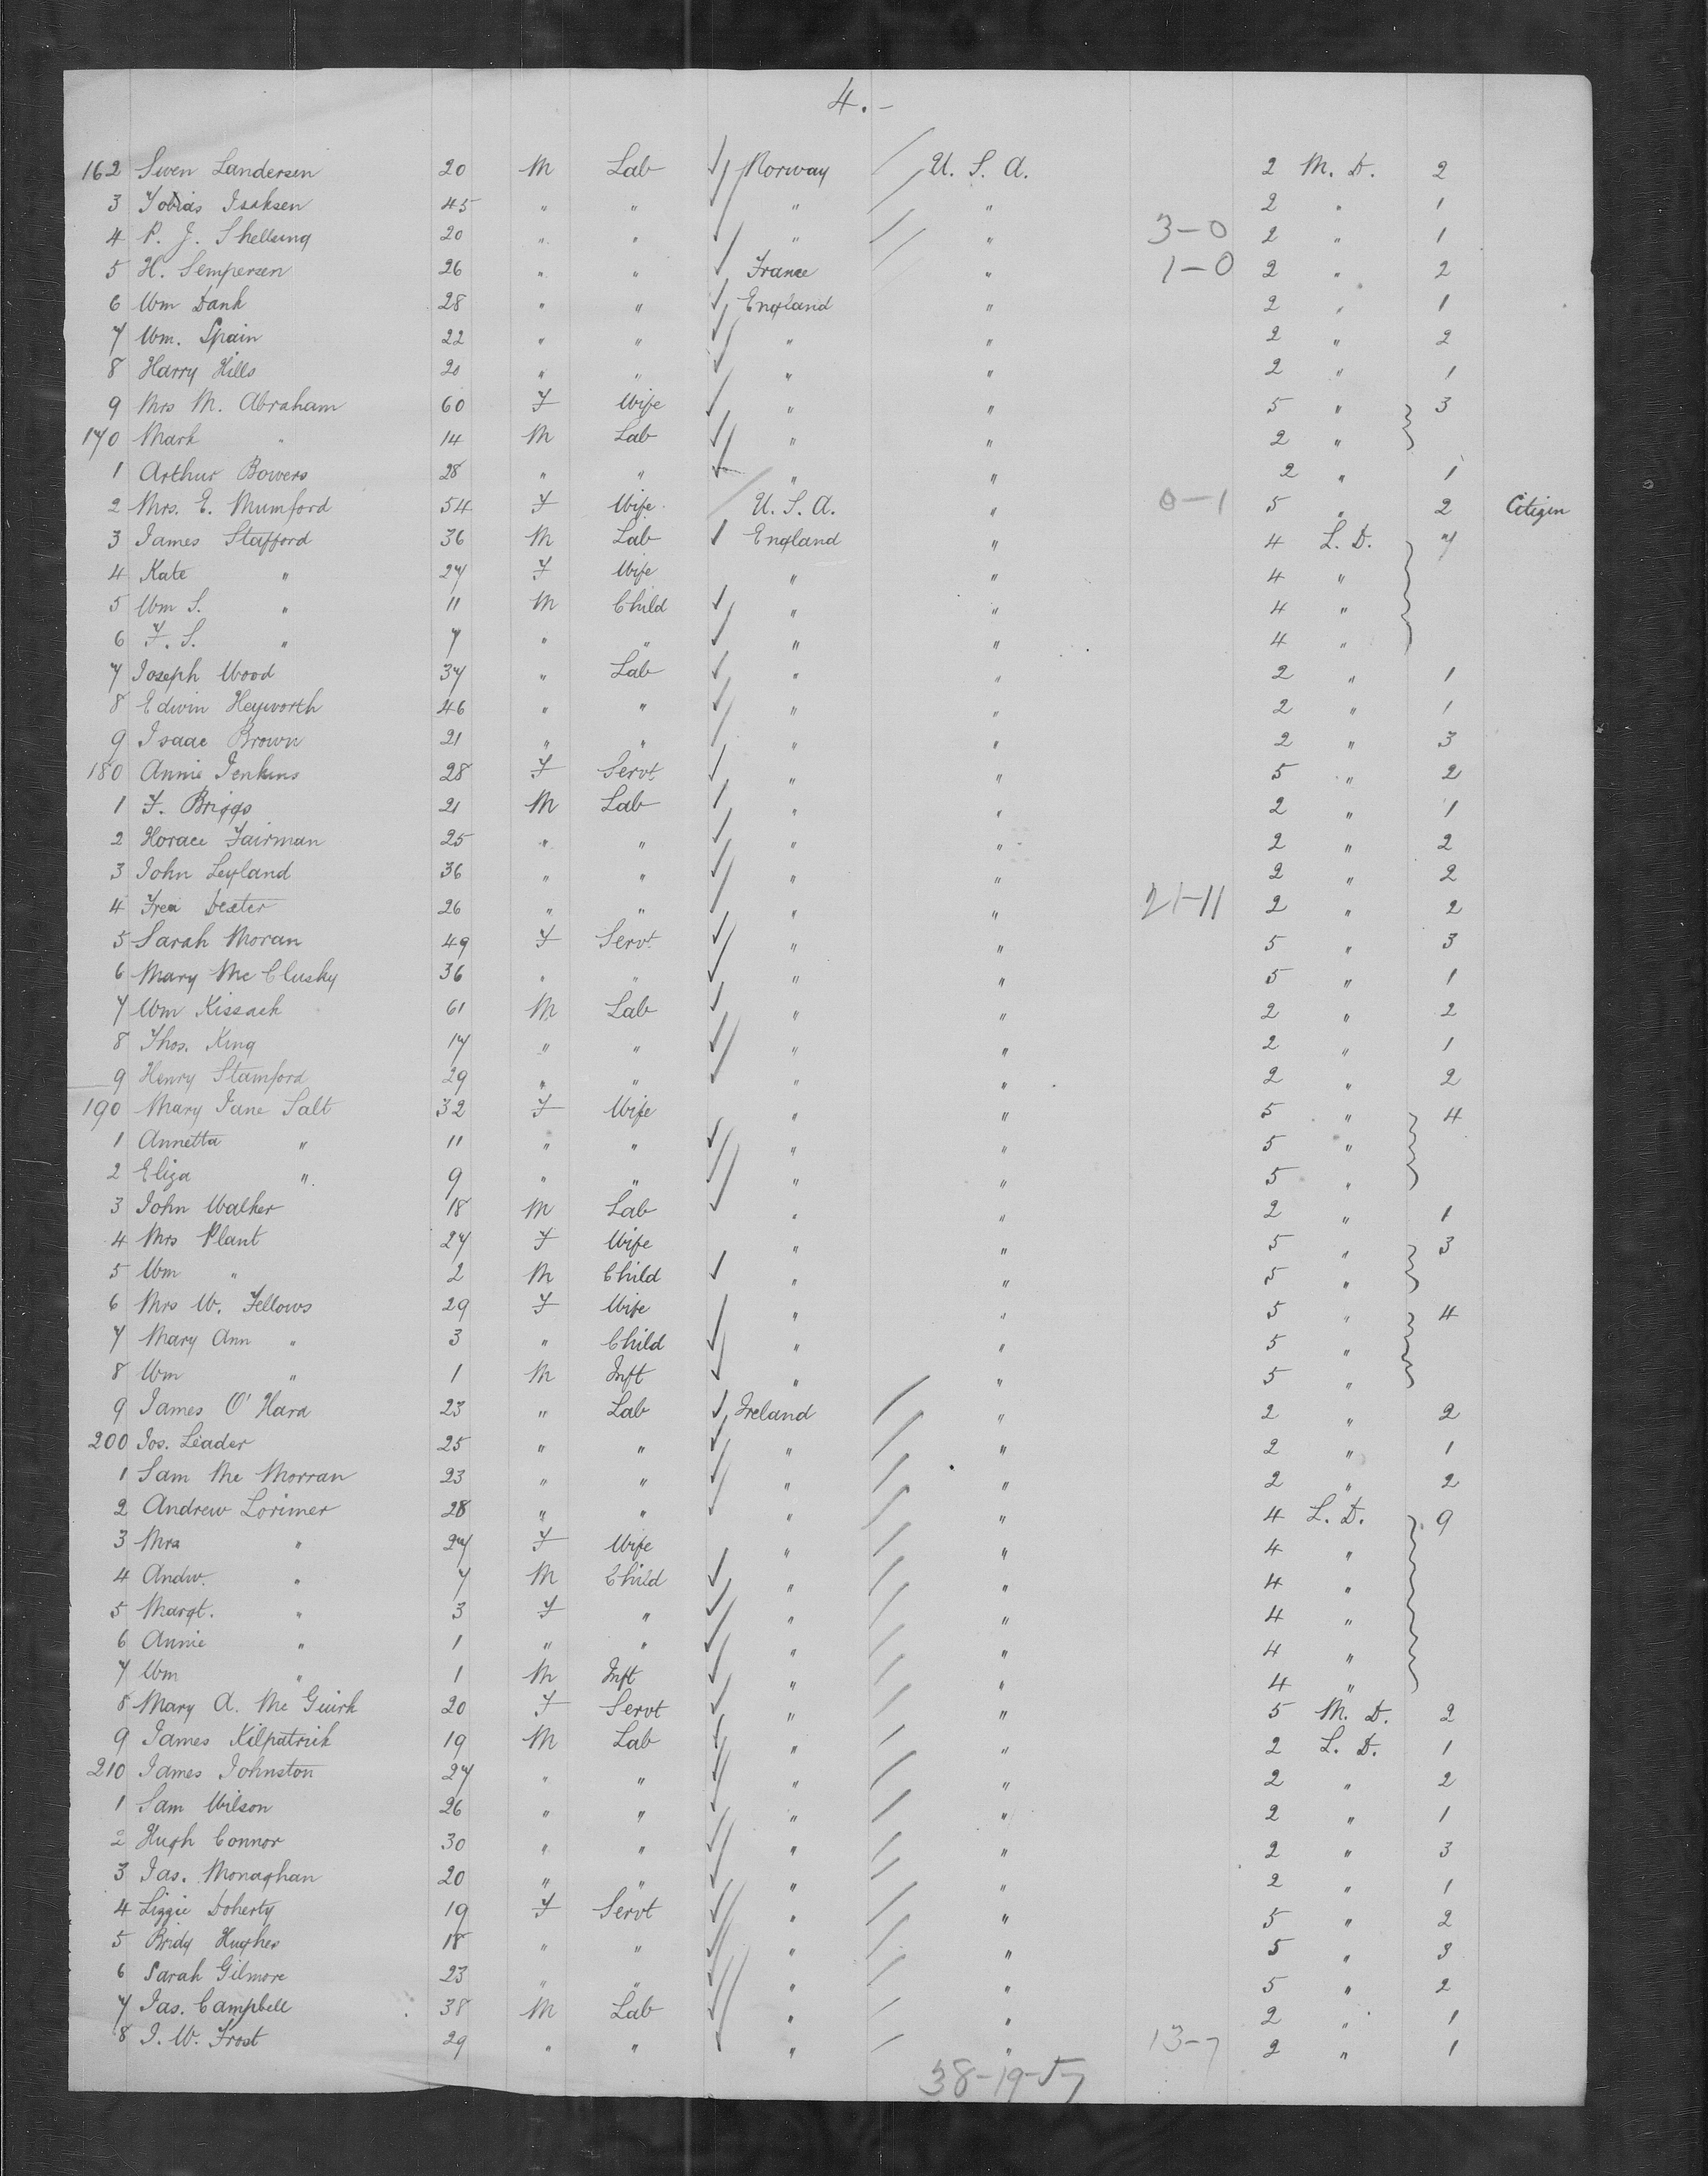 4.-
162 Swen Landersen 20 M Lab Norway U. S. A. 2 M. D. 2
3 Tobias Isaksen 45 " " " " 2 " 1
4 P. J. Shellsing 20 " " " " 3-0 2 " 1
5 H. Sempersen 26 " " France " 1-0 2 " 2
6 Wm Dank 28 " " England " 2 " 1
7 Wm. Spain 22 " " " " 2 " 2
8 Harry Hills 20 " " " " 2 " 1
9 Mrs M. Abraham 60 F Wife " " 5 " 3
170 Mark " 14 M Lab " " 2 "
1 Arthur Bowers 28 " " " " 2 " 1
2 Mrs. E. Mumford 54 F Wife U. S. A. " 0-1 5 " 2 Citizen
3 James Stafford 36 M Lab England " 4 L. D. 7
4 Kate " 27 F Wife " " 4 "
5 Wm S. " 11 M Child " " 4 "
6 F. S. " 7 " " " " 4 "
7 Joseph Wood 37 " Lab " " 2 " 1
8 Edwin Heyworth 46 " " " " 2 " 1
9 Isaac Brown 21 " " " " 2 " 3
180 Annie Jenkins 28 F Servt " " 5 " 2
1 F. Briggs 21 M Lab " " 2 " 1
2 Horace Fairman 25 " " " " 2 " 2
3 John Leyland 36 " " " " 2 " 2
4 Dexter 26 " " " " 21-11 2 " 2
5 Sarah Moran 49 F Servt. " " 5 " 3
6 Mary Mc Clusky 36 " " " " 5 " 1
7 Wm Kissack 61 M Lab " " 2 " 2
8 Thos. King 17 " " " " 2 " 1
9 Henry Stamford 29 " " " " 2 " 2
190 Mary Jane Salt 32 F Wife " " 5 " 4
1 Annetta " 11 " " " " 5 "
2 Eliza " 9 " " " " 5 "
3 John Walker 18 M Lab " " 2 " 1
4 Mrs Plant 27 F Wife " " 5 " 3
5 Wm " 2 M Child " " 5 "
6 Mrs W. Fellows 29 F Wife " " 5 " 4
7 Mary Ann " 3 " Child " " 5 "
8 Wm " 1 M Inft " " 5 "
9 James O'Hara 23 " Lab Ireland " 2 " 2
200 Jos. Leader 25 " " " " 2 " 1
1 Sam Mc Morran 23 " " " " 2 " 2
2 Andrew Lorimer 28 " " " " 4 L. D. 9
3 Mrs " 27 F Wife " " 4 "
4 Andw. " 7 M Child " " 4 "
5 Margt. " 3 F " " " 4 "
6 Annie " 1 " " " " 4 "
7 Wm " 1 M Inft " " 4 "
8 Mary A. Mc Guirk 20 F Servt " " 5 M. D. 2
9 James Kilpatrick 19 M Lab " " 2 L. D. 1
210 James Johnston 27 " " " " 2 " 2
1 Sam Wilson 26 " " " " 2 " 1
2 Hugh Connor 30 " " " " 2 " 3
3 Jas. Monaghan 20 " " " " 2 " 1
4 Lizzie Doherty 19 F Servt " " 5 " 2
5 Bridy Hughes 18 " " " " 5 " 3
6 Sarah Gilmore 23 " " " " 5 " 2
7 Jas. Campbell 38 M Lab " " 2 " 1
8 J. W. Frost 29 " " " " 13-7 2 " 1
38-19-57